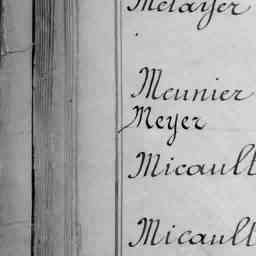 Métayer
Meunier
Meyer
Micault
Micault